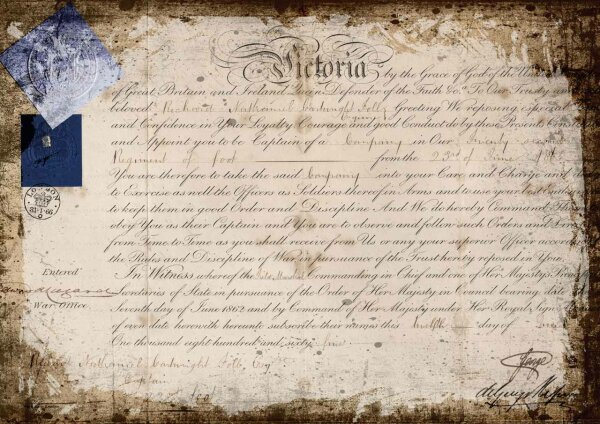 Victoria by the Grace of God of the United
of Great Britain and Ireland Queen Defender of the Faith &c. To Our Trusty and
beloved Richard Nathaniel Cartwright Foll Greeting We reposing especial
and Confidence in Your Loyalty Courage and good Conduct do by these Presents
and Appoint you to be Captain of a Company in Our
Regiment of foot from the 23rd of June
You are therefore to take the said Company into your Care and Charge and
to Exercise as well the Officers as Soldiers thereof in Arms and to use your best
to keep them in good Order and Discipline And We do hereby Command
obey You as their Captain and You are to observe and follow such Orders and
from Time to Time as you shall receive from Us or any your superior Officer
the Rules and Discipline of War in pursuance of the Trust hereby reposed in You.
In Witness whereof the Field Marshal Commanding in Chief and one of Her Majesty's
Secretaries of State in pursuance of the Order of Her Majesty in Council bearing date
Seventh day of June 1862 and by Command of Her Majesty under Her Royal Sign
of even date herewith hereunto subscribe their names this day of
One thousand eight hundred and sixty five
LONDON
Entered
War Office
Nathaniel Cartwright Foll Esq
Captain
foot
George